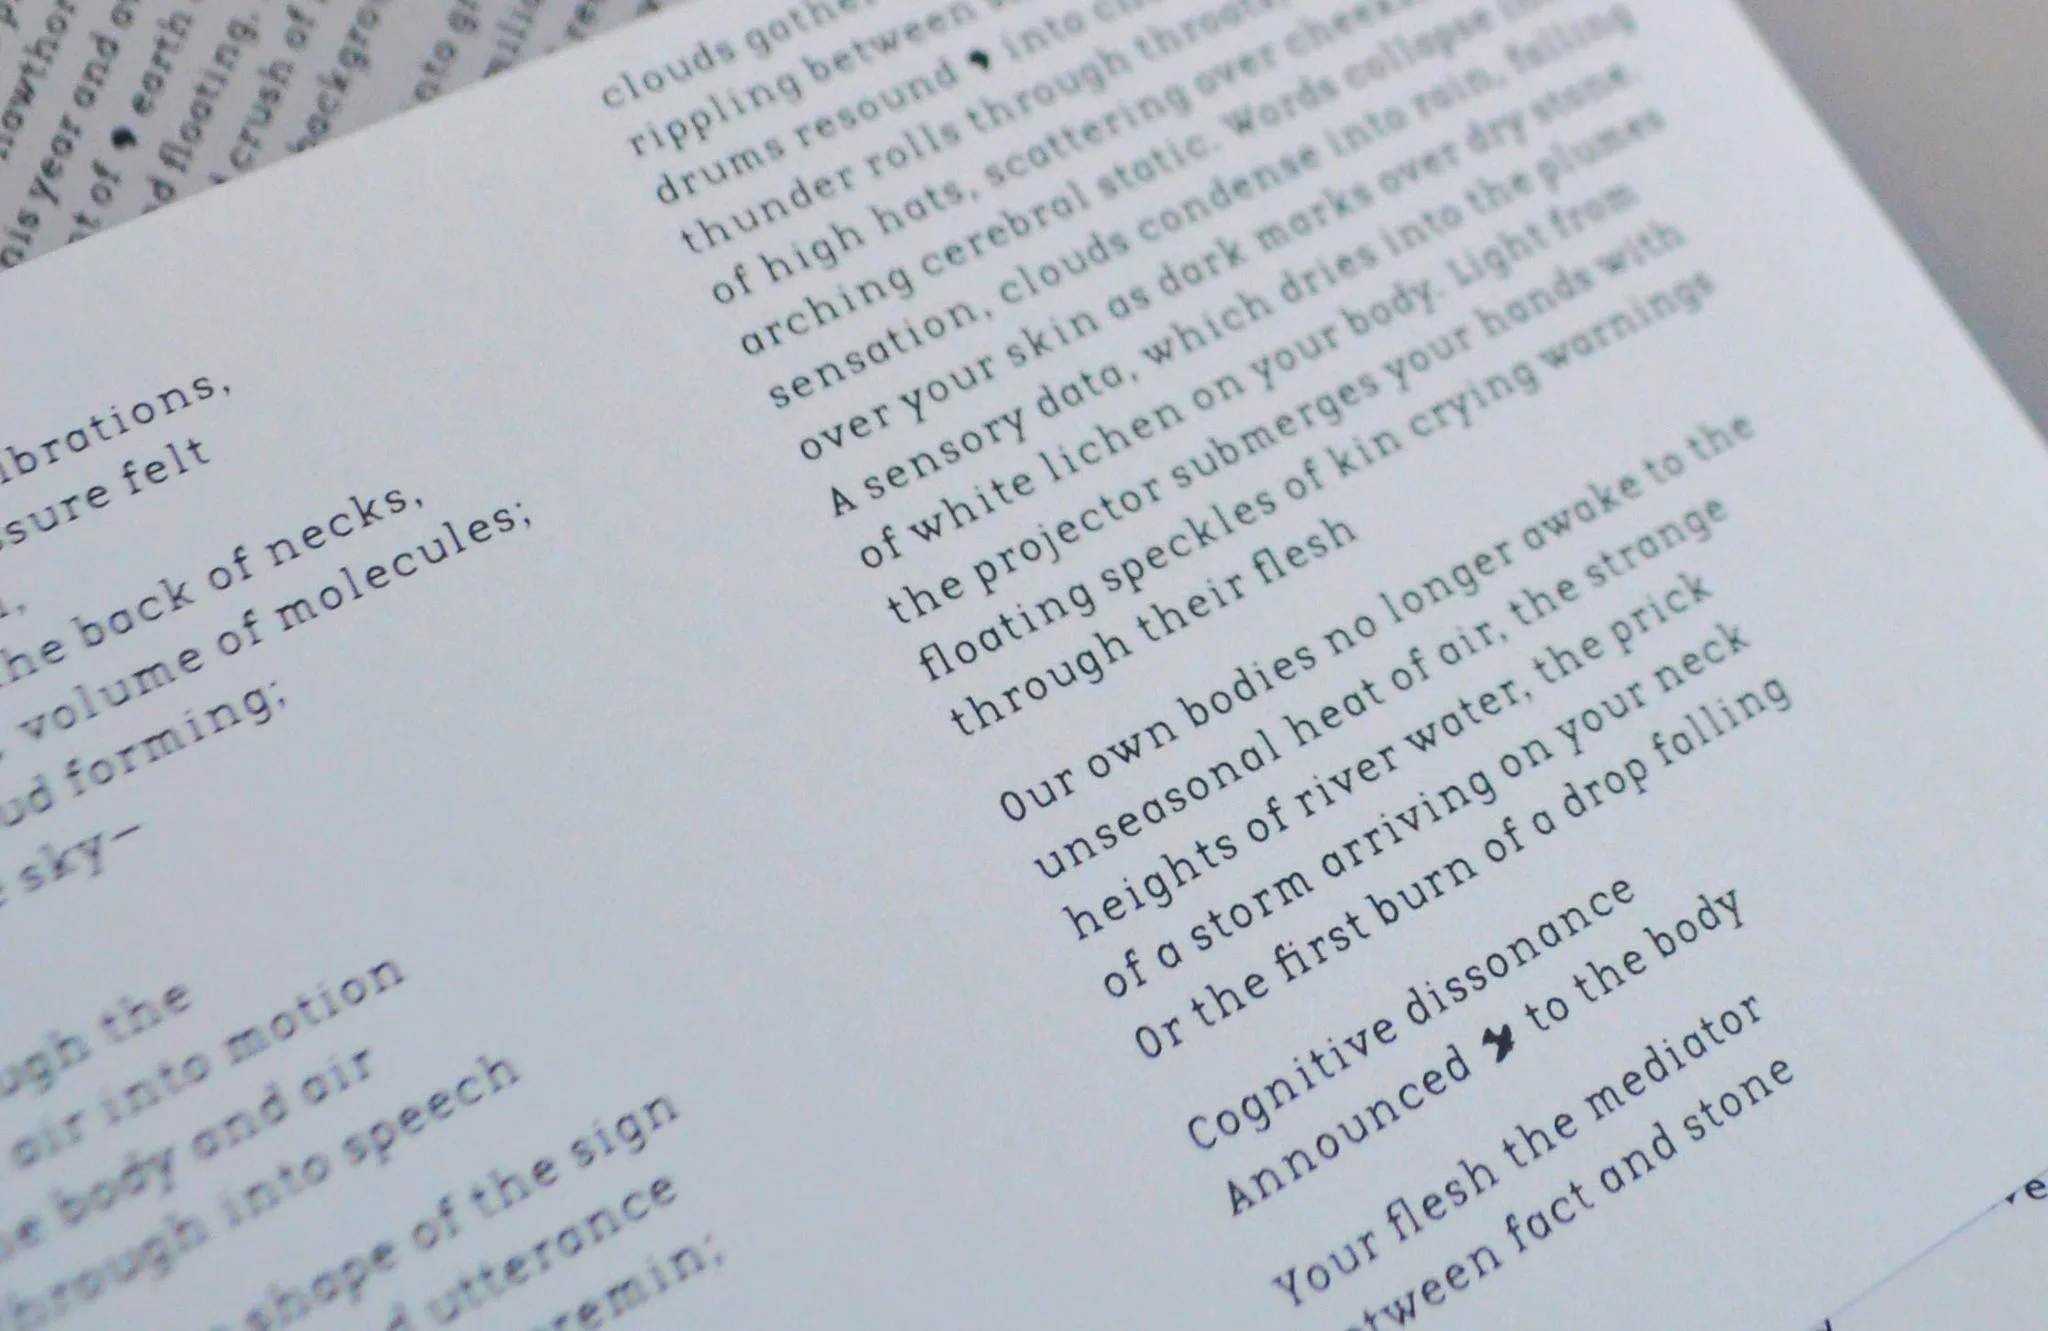 hawthor
his year and
t of , earth
d floating.
crush of
backgrou
into gr
clouds gathe
rippling between
drums resound , into
thunder rolls through throats,
of high hats, scattering over cheeks
arching cerebral static. Words collapse
sensation, clouds condense into rain, falling
over your skin as dark marks over dry stone.
A sensory data, which dries into the plumes
of white lichen on your body. Light from
the projector submerges your hands with
floating speckles of kin crying warnings
through their flesh
Our own bodies no longer awake to the
unseasonal heat of air, the strange
heights of river water, the prick
of a storm arriving on your neck
Or the first burn of a drop falling
Cognitive dissonance
Announced to the body
Your flesh the mediator
tween fact and stone
ibrations,
ssure felt
he back of necks,
volume of molecules;
ud forming;
sky—
ugh the
air into motion
e body and air
through into speech
shape of the sign
d utterance
remin;